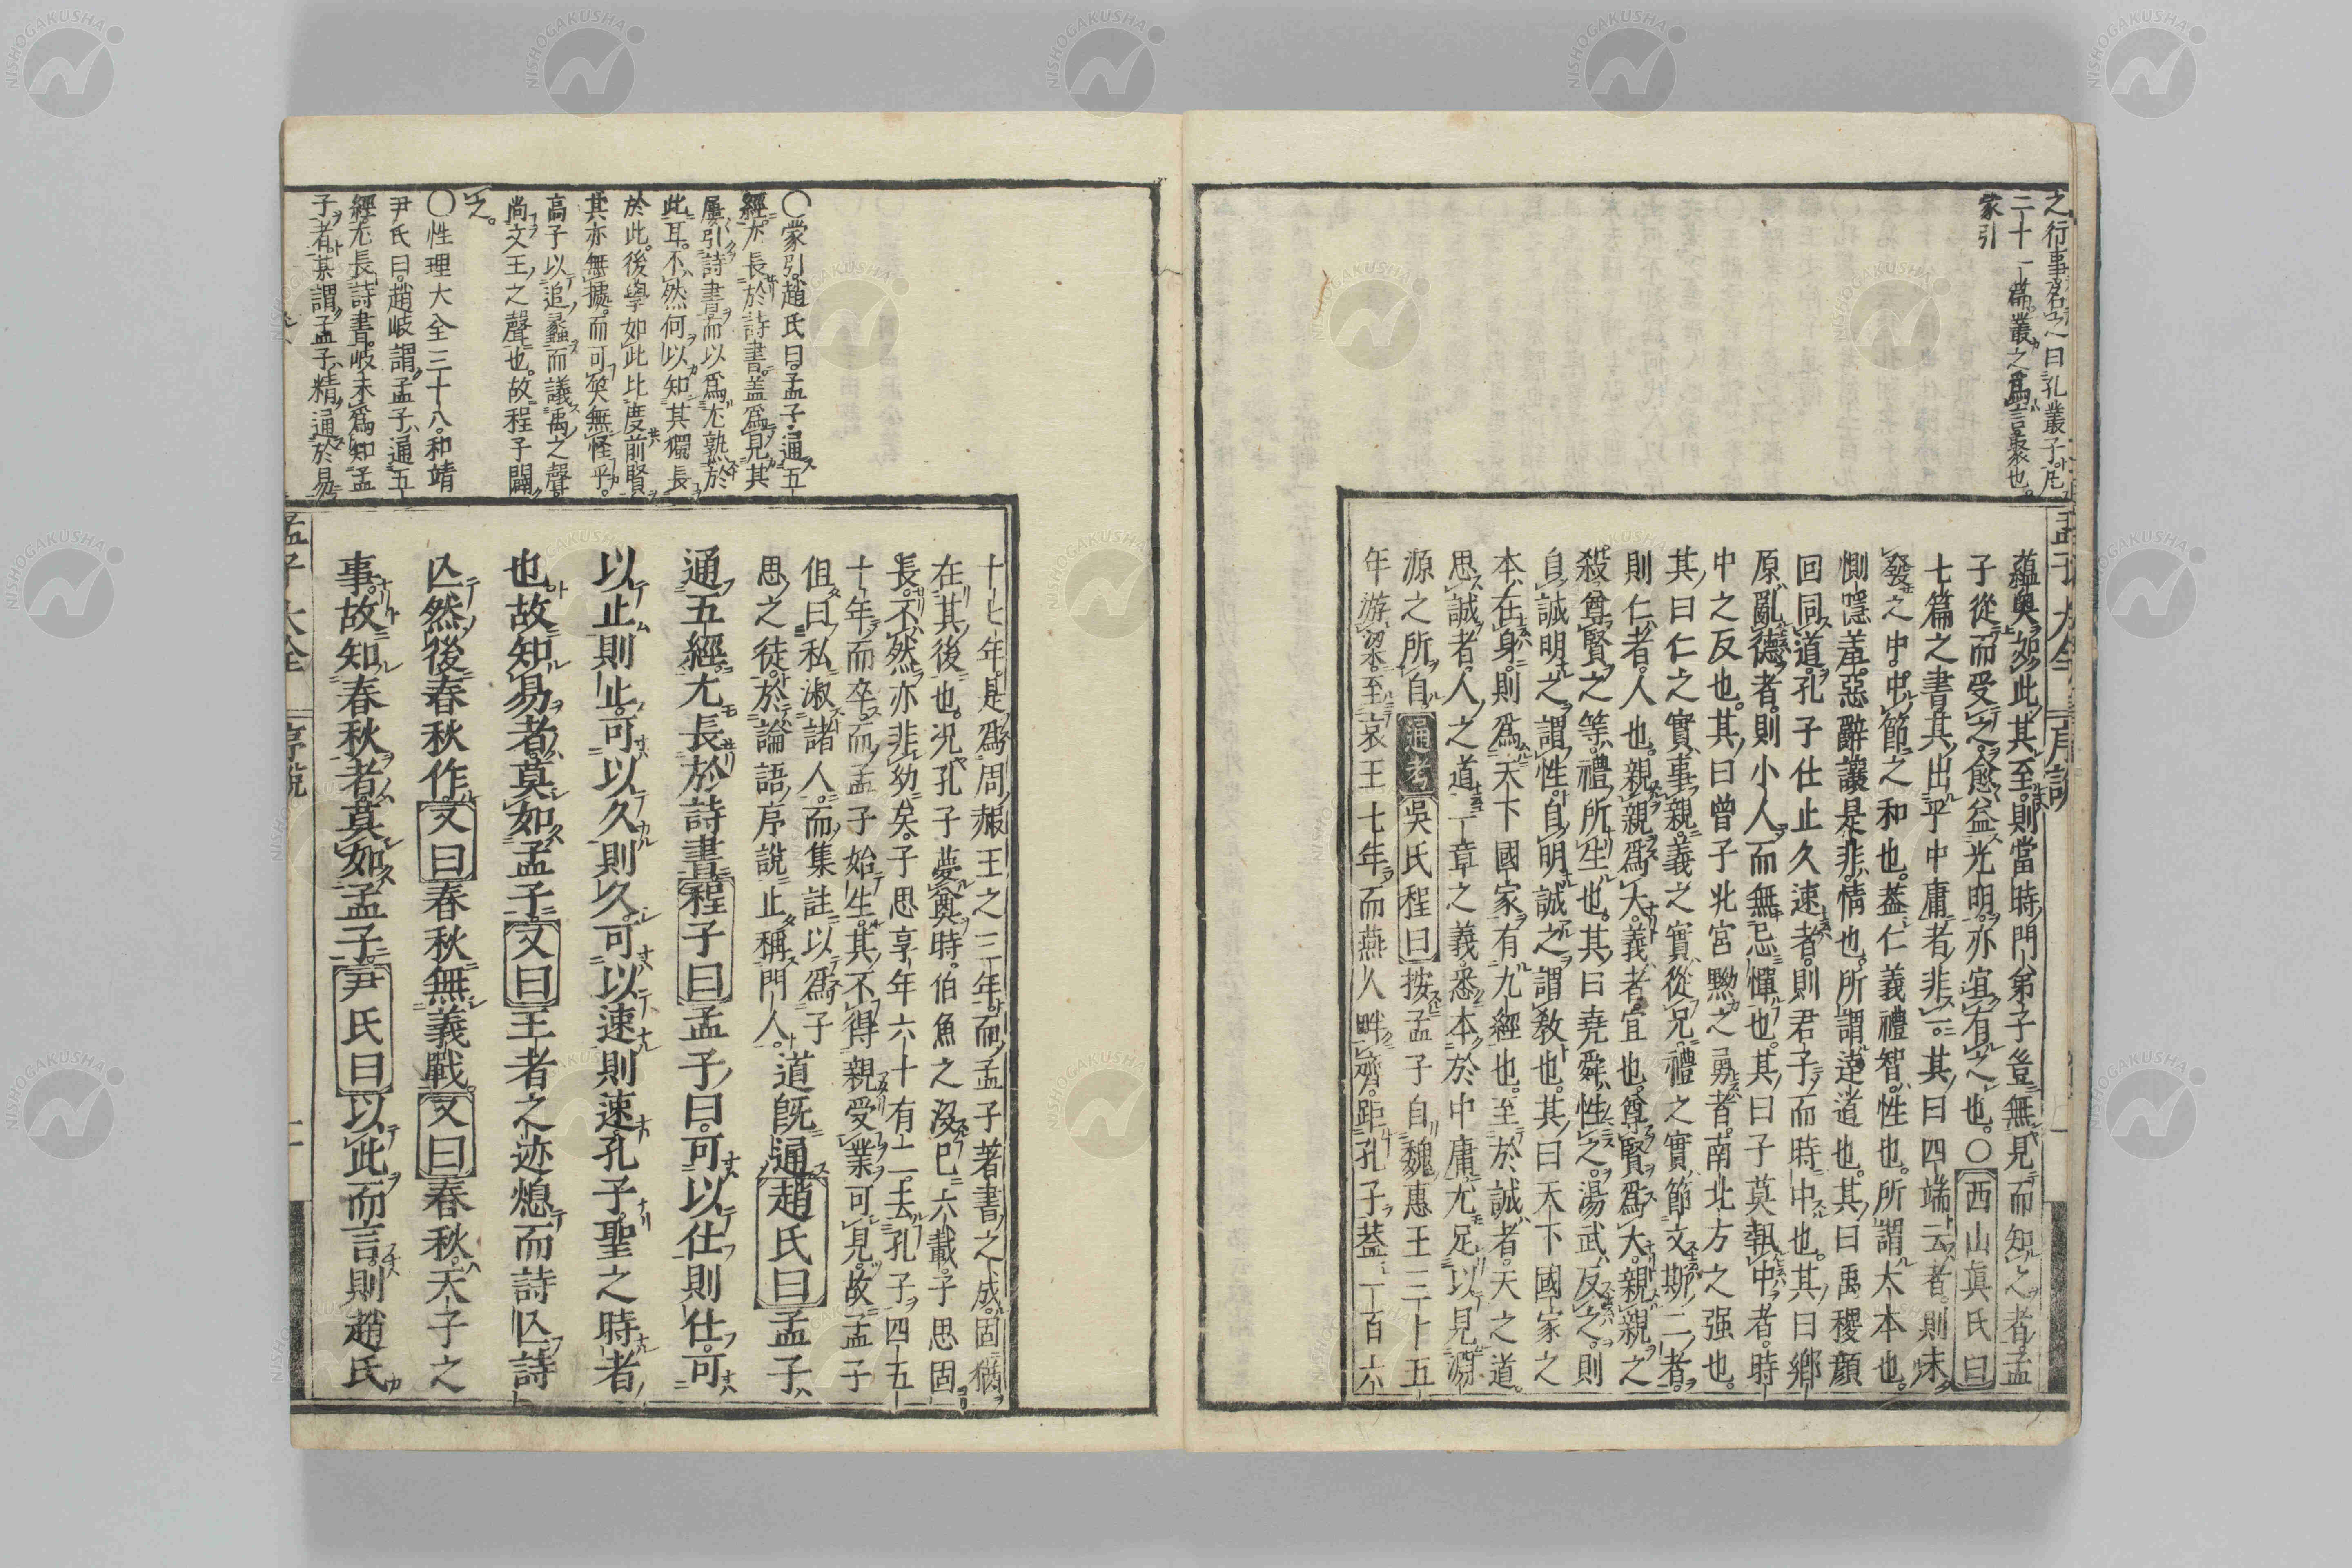 之行事名之曰孔叢子凡
二十一篇叢之爲言聚也。
蒙引
孟子大全 序說
蘊奧如此其至則當時門弟子豈無見而知之者孟
子從而受之愈益光明亦宜有之也。○西山眞氏曰
七篇之書其出乎中庸者非一。其曰四端云者則未
發之中。中節之和也。蓋仁義禮智性也。所謂大本也。
惻隱羞惡辭讓是非情也。所謂達道也。其曰禹稷顔
回同道。孔子仕止久速者。則君子而時中也。其曰鄕
原亂德者。則小人而無忌憚也。其曰子莫執中者。時
中之反也。其曰曾子北宮黝之勇者。南北方之强也。
其曰仁之實事親。義之實從兄。禮之實節文斯二者。
則仁者人也。親親爲大。義者宜也。尊賢爲大。親親之
殺尊賢之等。禮所生也。其曰堯舜性之。湯武反之。則
自誠明之謂性。自明誠之謂敎也。其曰天下國家之
本在身。則爲天下國家有九經也。至於誠者。天之道。
思誠者。人之道一章之義。悉本於中庸。尤足以見淵
源之所自通考吳氏程曰按孟子自魏惠王三十五
年游梁。至哀王七年而燕人畔齊。距孔子蓋一百六
○蒙引。趙氏曰。孟子通五
經尤長於詩書。蓋爲見其
屢引詩書而以爲尤熟於
此耳。不然何以知其獨長
於此。後學如此比度前賢
其亦無據。而可笑無怪乎。
高子以追蠡而議禹之聲。
尚文王之聲也。故程子闢
之。
○性理大全三十八。和靖
尹氏曰。趙岐謂孟子通五
經尤長詩書。岐未爲知孟
子者。某謂孟子精通於易
十七年。是爲周赧王之三年。而孟子著書之成。固猶
在其後也。況孔子夢奠時。伯魚之沒已六載。子思固
長。不然亦非幼矣。子思享年六十有二。去孔子四五
十年而卒。而孟子始生。其不得親受業可見。故孟子
但曰私淑諸人。而集註以爲子
思之徒。於論語序說止稱門人。道既通趙氏曰孟子
通五經尤長於詩書程子曰孟子曰。可以仕則仕。可
以止則止。可以久則久。可以速則速。孔子聖之時者
也故知易者莫如孟子又曰王者之迹熄而詩亾詩
亾然後春秋作。又曰春秋無義戰。又曰春秋。天子之
事。故知春秋者。莫如孟子。尹氏曰以此而言。則趙氏
孟子大全 序說 二